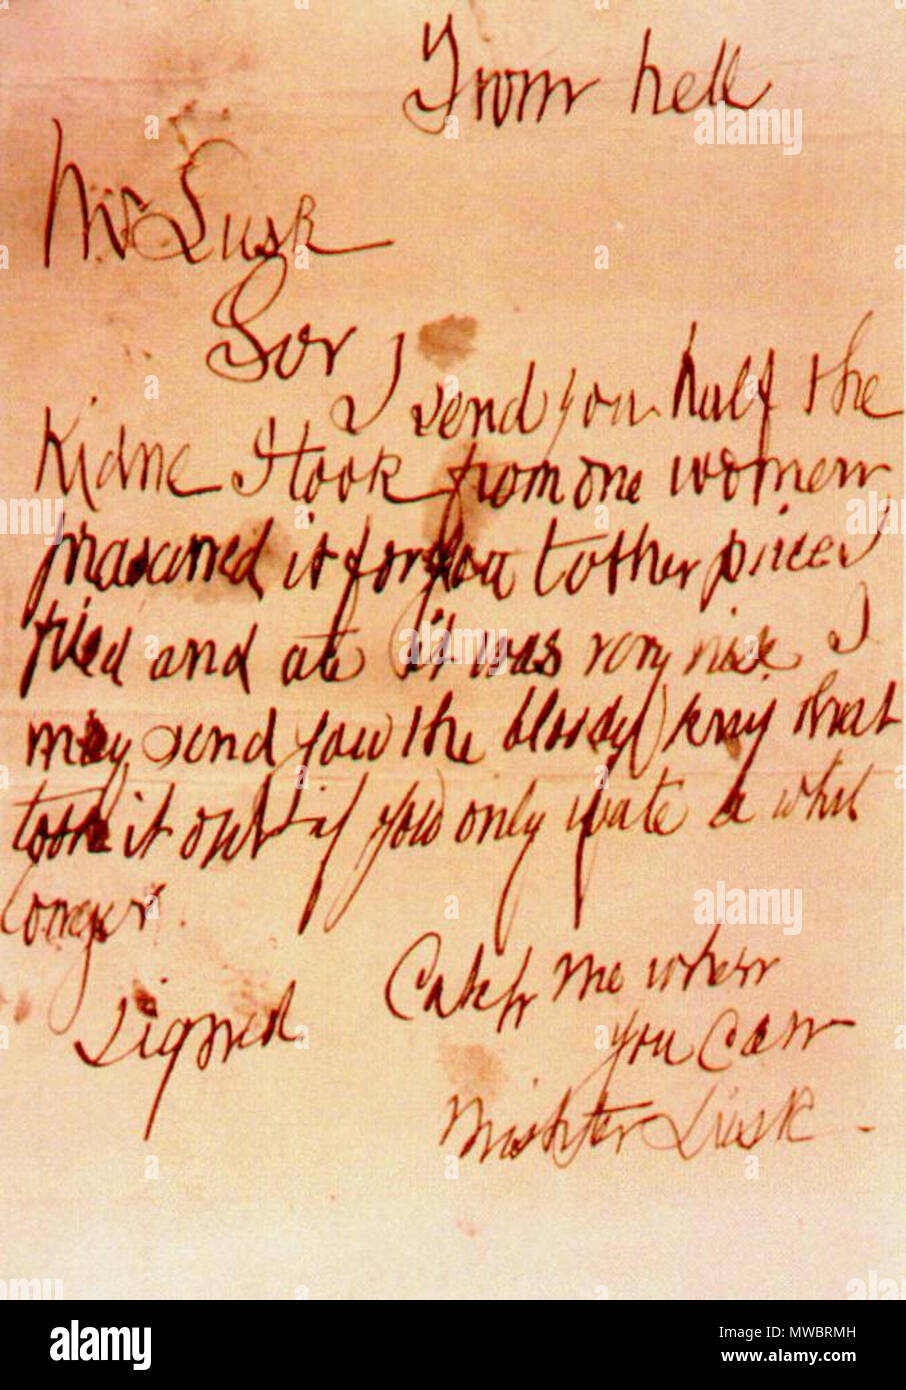 From hell
Mr Lusk
Sor
I send you half the
Kidne I took from one women
prasarved it for you tother piece I
fried and ate it was very nise I
may send you the bloody knif that
took it out if you only wate a whil
longer.
signed
Catch me when
you can
Mishter Lusk -
alamy
a
alamy
Image ID: MWBRMH
www.alamy.com